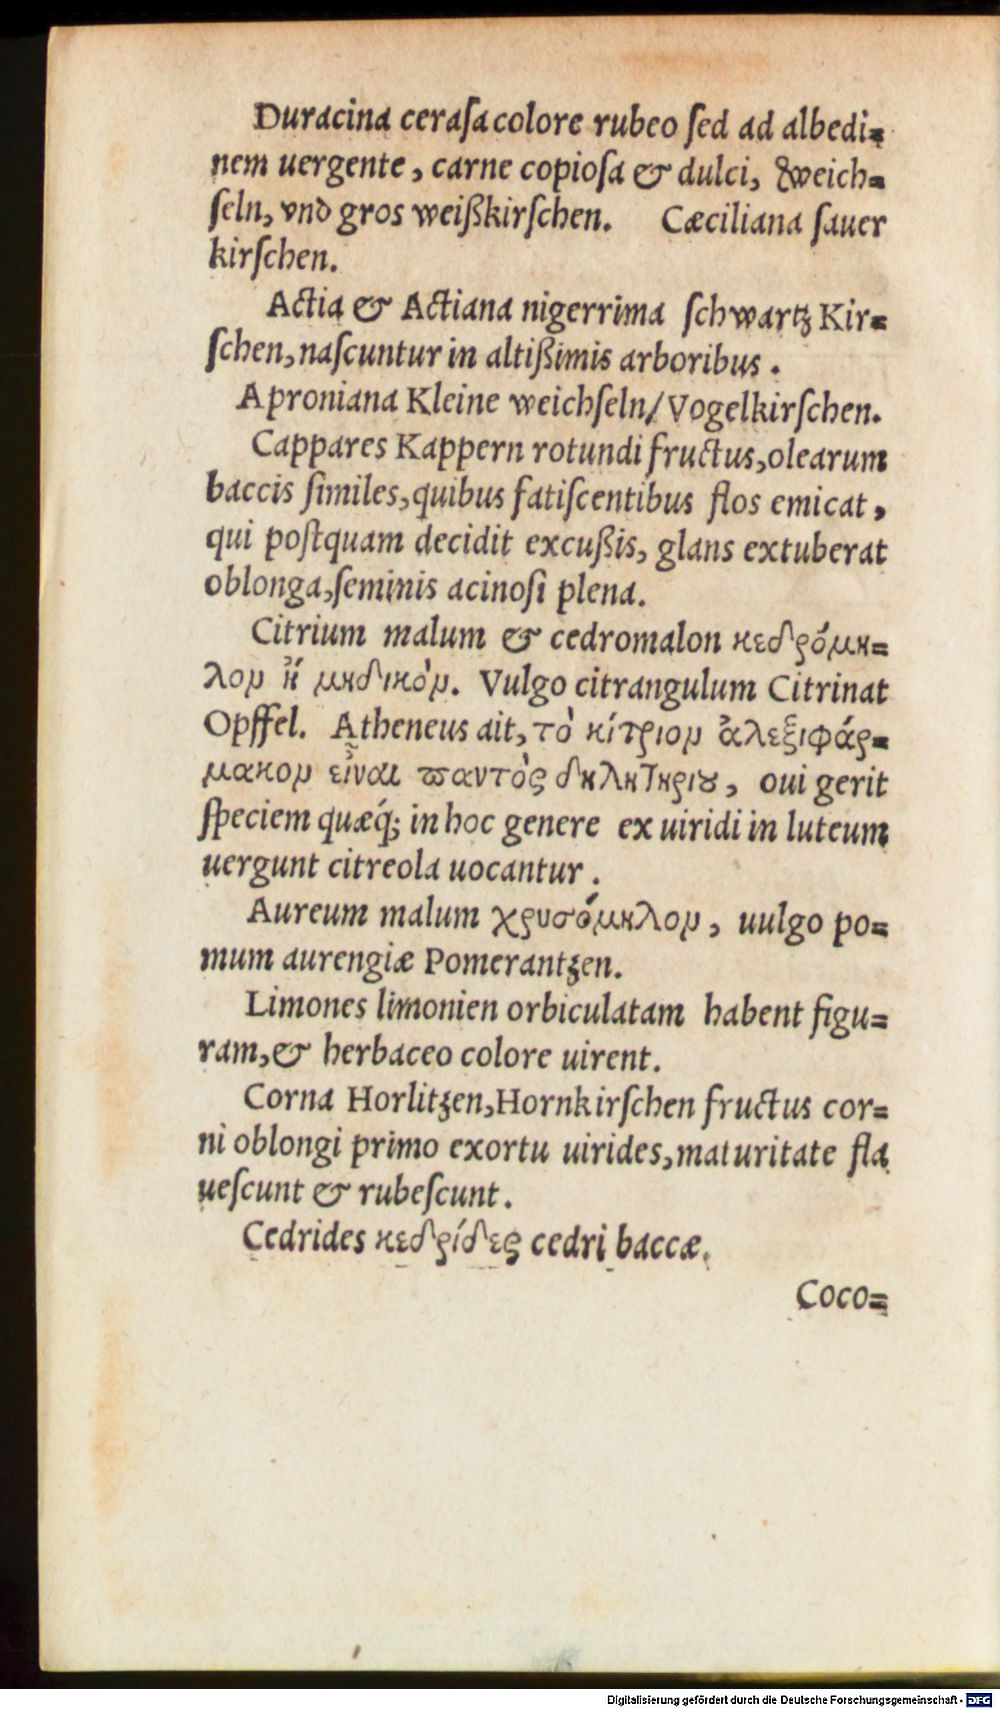 Duracina ceraſa colore rubeo ſed ad albedi⸗
nem uergente, carne copioſa & dulci, Weich⸗
ſeln, vnd gros weißkirſchen. Cæciliana ſauer
kirſchen.
Actia & Actiana nigerrima ſchwartz Kir⸗
ſchen, naſcuntur in altißimis arboribus.
Aproniana Kleine weichſeln/ Vogelkirſchen.
Cappares Kappern rotundi fructus, olearum
baccis ſimiles, quibus fatiſcentibus flos emicat,
qui poſtquam decidit excußis, glans extuberat
oblonga, ſeminis acinoſi plena.
Citrium malum & cedromalon κεδρόμη⸗
λον ἢ μηδικὸν. Vulgo citrangulum Citrinat
Opffel. Atheneus ait, τὸ κίτριον ἀλεξιφάρ⸗
μακον εἶναι παντὸς δηλητηρίου, oui gerit
ſpeciem quæq́; in hoc genere ex uiridi in luteum
uergunt citreola uocantur.
Aureum malum χρυσόμηλον, uulgo po⸗
mum aurengiæ Pomerantzen.
Limones limonien orbiculatam habent figu⸗
ram, & herbaceo colore uirent.
Corna Horlitzen, Hornkirſchen fructus cor⸗
ni oblongi primo exortu uirides, maturitate fla
ueſcunt & rubeſcunt.
Cedrides κεδρίδες cedri baccæ.
Coco⸗
Digitalisierung gefördert durch die Deutsche Forschungsgemeinschaft - DFG